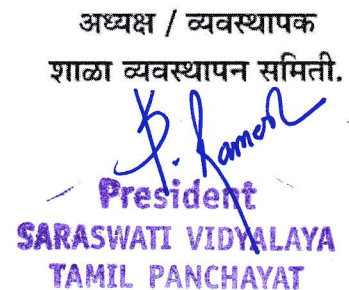 अध्यक्ष / व्यवस्थापक
शाळा व्यवस्थापन समिती.
P. Ramesh
President
SARASWATI VIDYALAYA
TAMIL PANCHAYAT